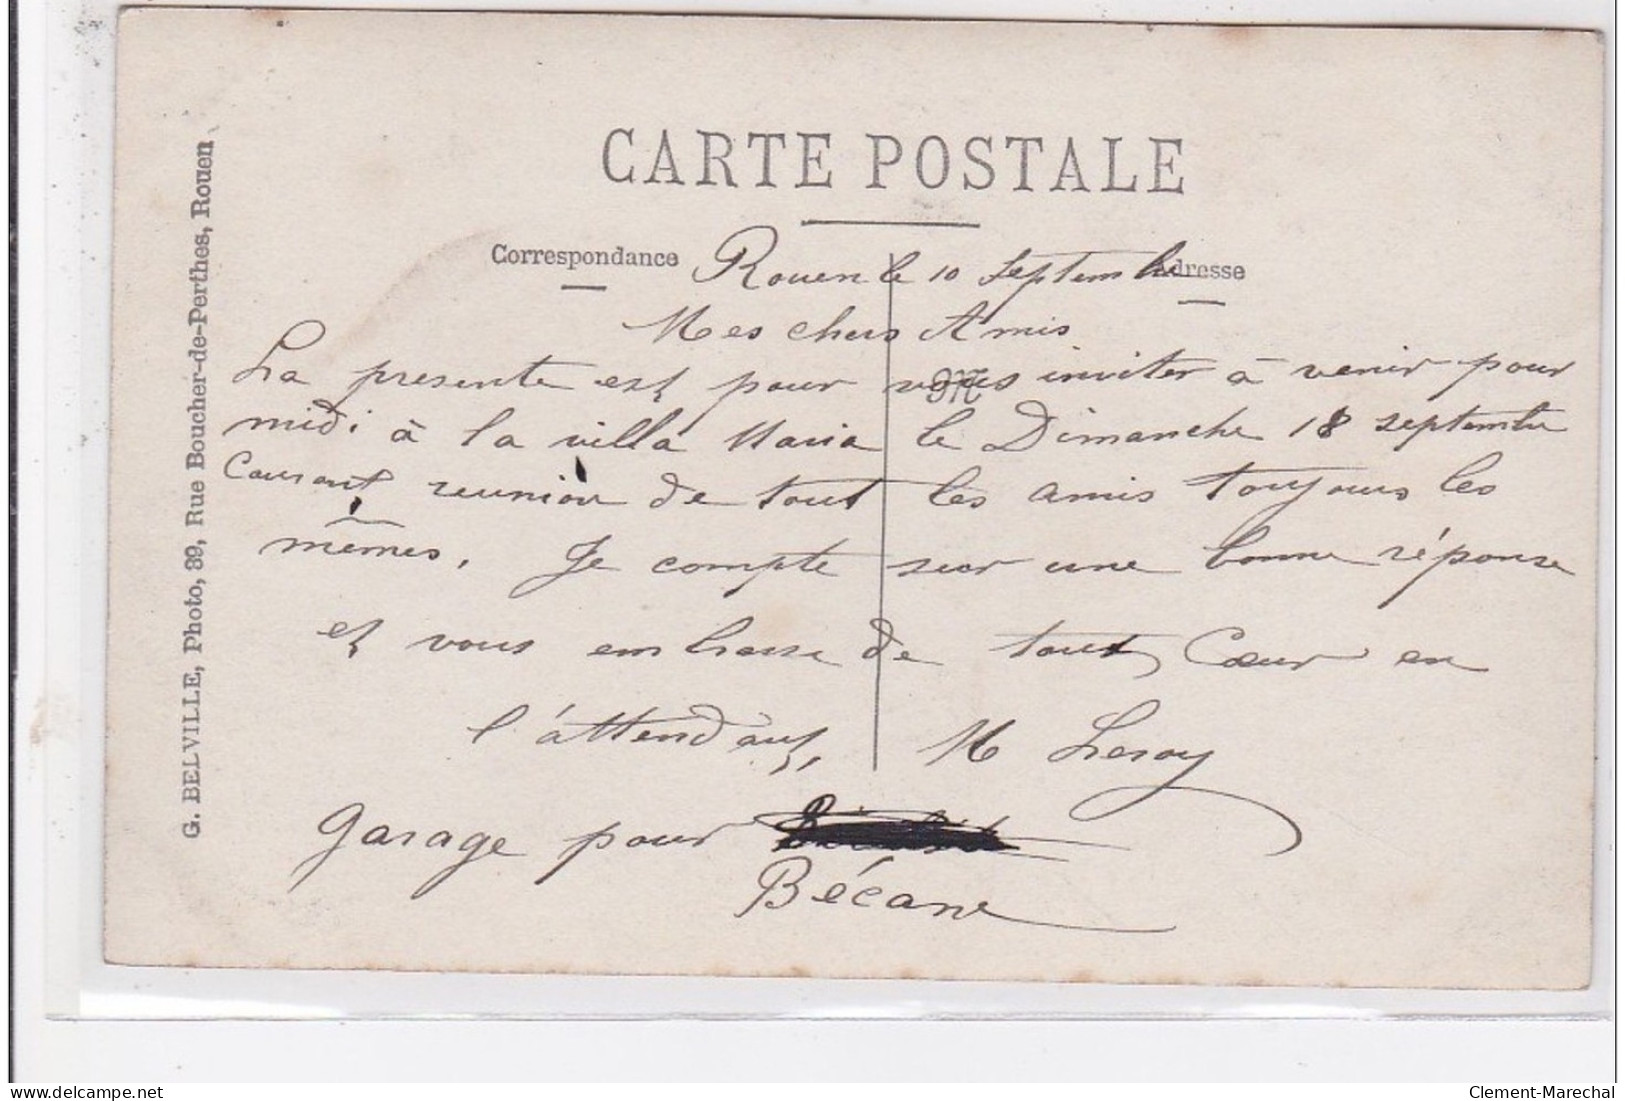 CARTE POSTALE
Correspondance
Adresse
Rouen le 10 septembre
Mes chers Amis
La presente est pour vous inviter à venir pour
midi à la villa Maria le Dimanche 18 septembre
Courant reunion de tout les amis toujours les
mêmes. Je compte sur une bonne réponse
et vous embrasse de tout Cœur en
l'attendant, M Leroy
garage pour
Bécane
G. BELVILLE, Photo, 39, Rue Boucher-de-Perthes, Rouen
delcampe.net
Clement-Marechal